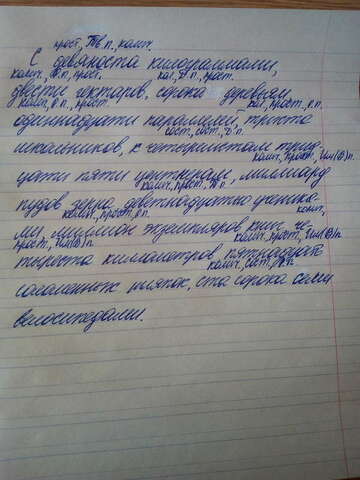 прост., Тв п., колич.
С девяноста килограммами,
колич., И.п., прост. кол., Д.п., прост.
двести гектаров, сорока деревьям,
колич., Д.п., прост. кол, прост., п.п.
одиннадцати параллелей, триста
сост., сост., Д.п.
школьников, к четыремстам трид-
колич., прост., Им(В)п.
цати пяти центнерам, миллиард
колич., прост., п.
пудов зерна, девятнадцатью ученика-
колич., прост., п. колич.,
ми, миллион экземпляров книг, че-
прост., Им(В)п. колич., прост., Им(В)п.
тыреста километров, пятнадцать
колич., сост., п.
соломенных шляпок, ста сорока семи
велосипедами.